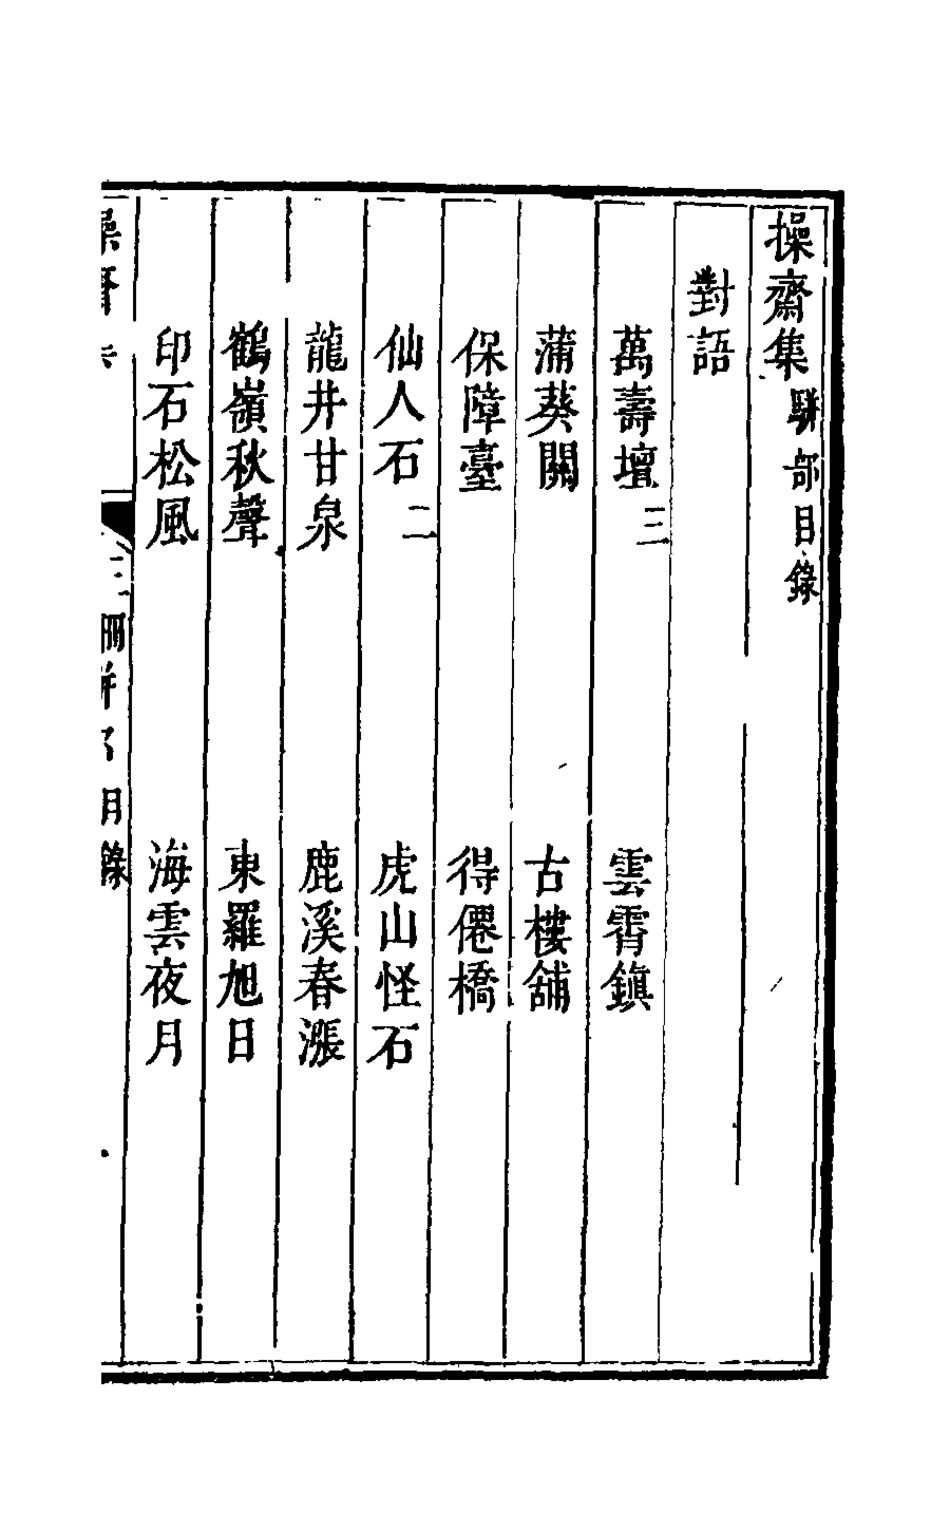 操齋集駢部目錄
對語
萬壽壇三 雲霄鎮
蒲葵關 古樓舖
保障臺 得僊橋
仙人石二 虎山怪石
龍井甘泉 鹿溪春漲
鶴嶺秋聲 東羅旭日
印石松風 海雲夜月